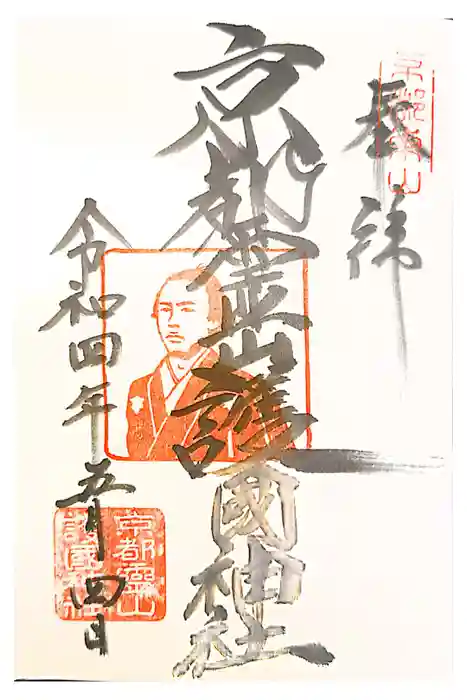 奉拝
京都東山
京都霊山護國神社
令和四年五月四日
京都靈山
護國神社